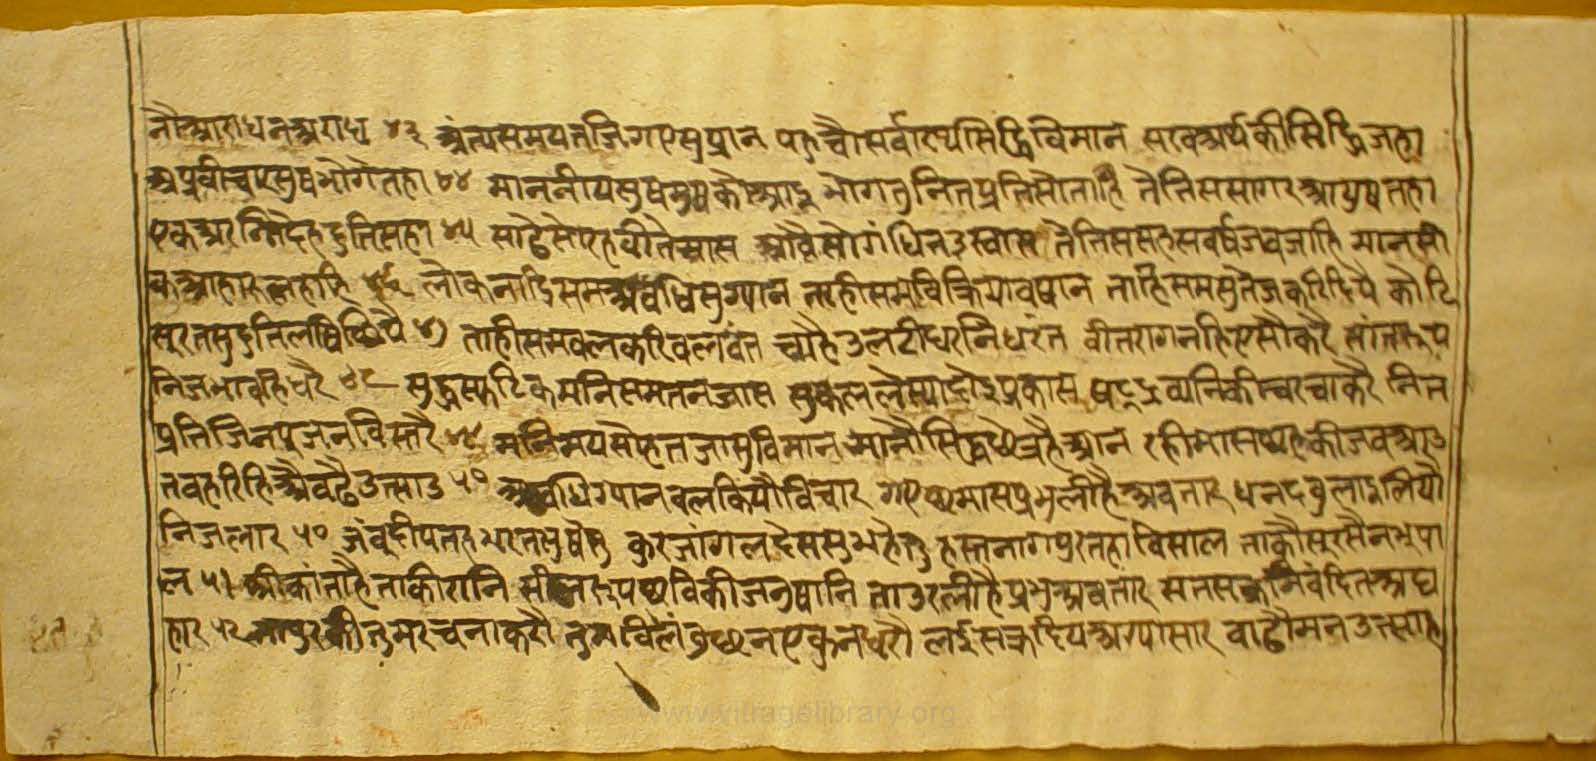 नौआराधनअराध ४३ अंत्यसमयतजिगएसुप्रान पहुचौसर्वारथसिद्धिविमान सरवअर्थकीसिद्धिजहा
अप्रवीचारसुषभोगैतहा ४४ माननीयसुषमुष्यकौआइ भोगतुनितप्रतिसौताहि तेतिससागरआयुषतहा
एकअरत्निदेहदुतिमहा ४५ साढेसोरहवीतैमास आवैसौगंधिनउस्वास तेतिससहसवर्षजवजाहि मानसी
कआहारलहाहि ४६ लोकनाडिसमअवधिसुग्यान तहीसमविक्रियावषान ताहिसमसुतेजकरिदिपै कोटि
सूरतसुदुतिलषिछिपै ४७ ताहीसमवलकरिवलवंत चाहैउलटीधरनिधरंत वीतरागनहिएसौकरै सांतरूप
निजभावहिधरै ४८ सुद्धस्फटिकमनिसमतनजास सुकललेस्यादोइप्रकास षट्द्रव्यनिकीचरचाकरै नित
प्रतिजिनपूजनविस्तरै ४९ मनिमयसोहतजासुविमान मानौसिद्धछेत्रहैआन रहीमासषटकीजवआउ
तवहरिहिअैवढैउत्साउ ५० अवधिग्यानवलकियौविचार गएछमासप्रभुलीहैअवतार धनदवुलाइलियौ
निजलार ५० जंबूदीपतहभरतसुषेतु कुरजांगलदेससुभहेतु हस्तनागपुरतहाविसाल ताकौसूरसैनभूपा
ल ५१ श्रीकांताहैताकीरानि सीलरूपछविकीजनुषानि ताउरलीहैप्रभुअवतार सतसक्रनिवंदितअघ
हार ५२ तापुरकीतुमरचनाकरौ तुमविलंवुछनएकुनधरौ लईसक्रदियअग्यासार वाढौमनउत्साह
www.vitragelibrary.org